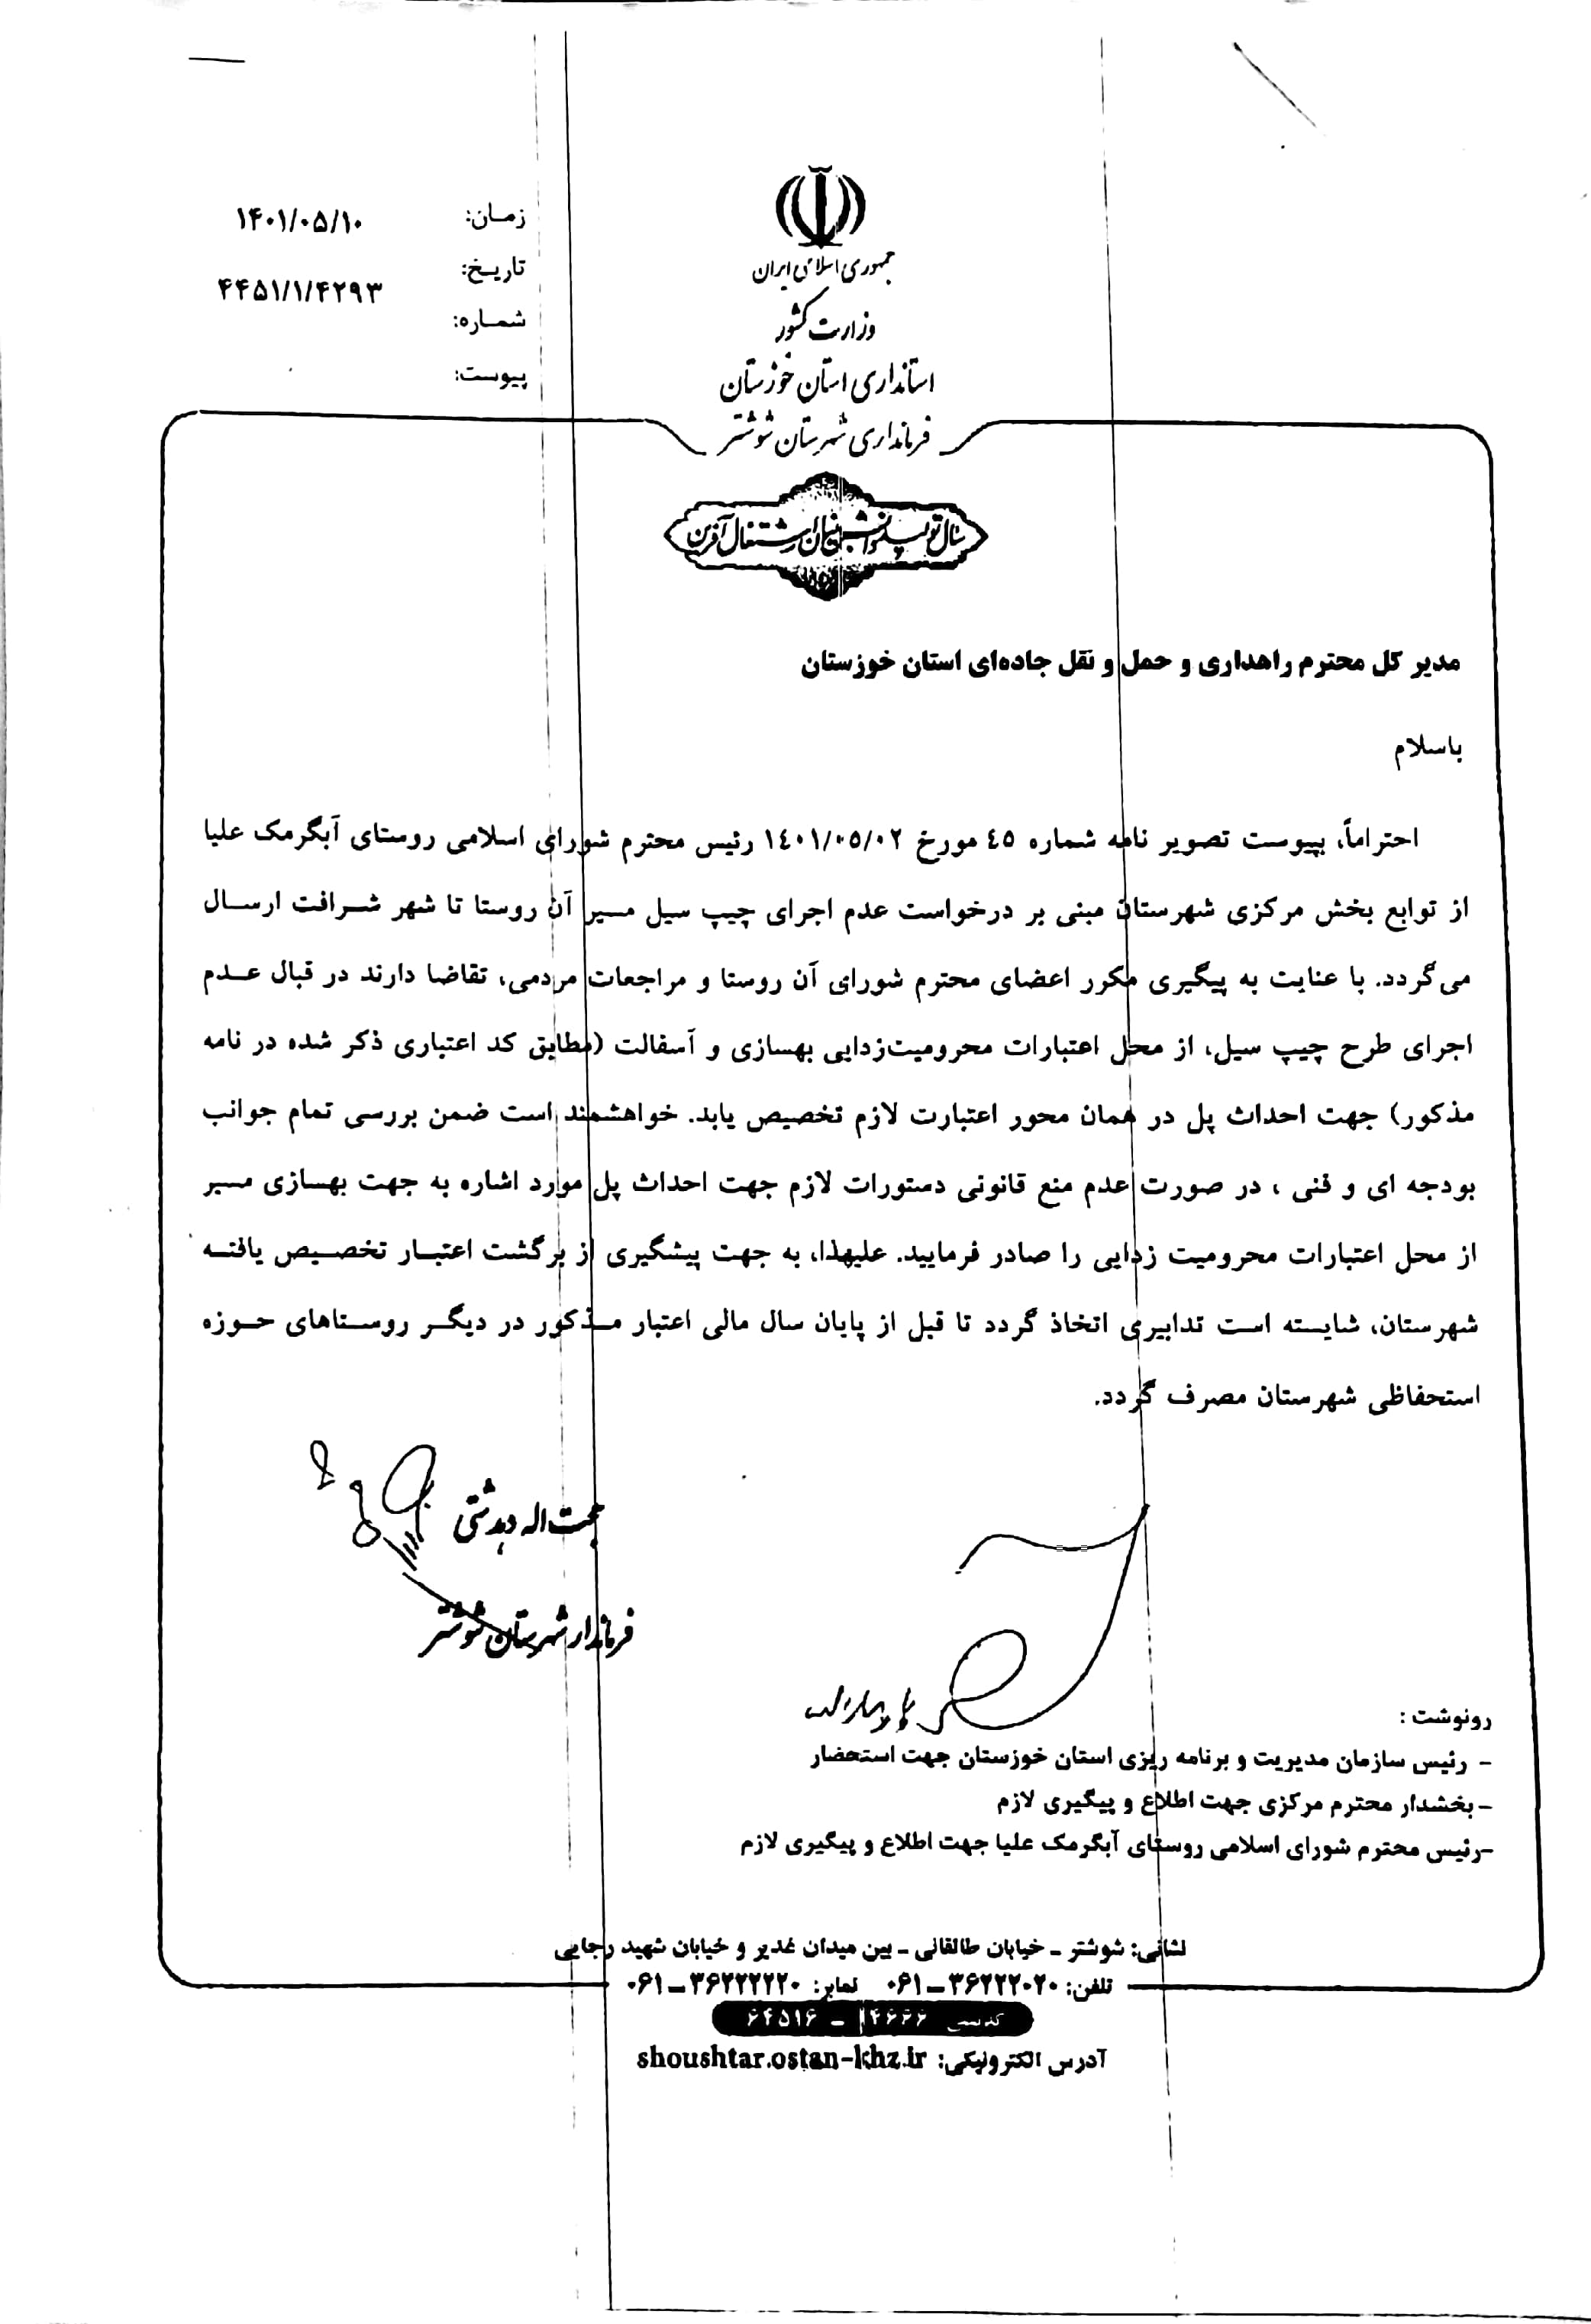 زمان:
۱۴۰۱/۰۵/۱۰
تاریخ:
۴۴۵۱/۱/۴۲۹۳
شماره:
پیوست:
جمهوری اسلامی ایران
وزارت کشور
استانداری استان خوزستان
فرمانداری شهرستان شوشتر
سال تولید دانش بنیان اشتغال آفرین
مدیر کل محترم راهداری و حمل و نقل جاده‌ای استان خوزستان
باسلام
احتراماً، بپیوست تصویر نامه شماره ٤٥ مورخ ١٤٠١/٠٥/٠٢ رئیس محترم شورای اسلامی روستای آبگرمک علیا
از توابع بخش مرکزی شهرستان مبنی بر درخواست عدم اجرای چیپ سیل مسیر آن روستا تا شهر شرافت ارسال
می‌گردد. با عنایت به پیگیری مکرر اعضای محترم شورای آن روستا و مراجعات مردمی، تقاضا دارند در قبال عدم
اجرای طرح چیپ سیل، از محل اعتبارات محرومیت‌زدایی بهسازی و آسفالت (مطابق کد اعتباری ذکر شده در نامه
مذکور) جهت احداث پل در همان محور اعتبارت لازم تخصیص یابد. خواهشمند است ضمن بررسی تمام جوانب
بودجه ای و فنی ، در صورت عدم منع قانونی دستورات لازم جهت احداث پل مورد اشاره به جهت بهسازی مسیر
از محل اعتبارات محرومیت زدایی را صادر فرمایید. علیهذا، به جهت پیشگیری از برگشت اعتبار تخصیص یافته
شهرستان، شایسته است تدابیری اتخاذ گردد تا قبل از پایان سال مالی اعتبار مذکور در دیگر روستاهای حوزه
استحفاظی شهرستان مصرف گردد.
حجت اله دهدشتی
فرماندار شهرستان شوشتر
رونوشت :
- رئیس سازمان مدیریت و برنامه ریزی استان خوزستان جهت استحضار
- بخشدار محترم مرکزی جهت اطلاع و پیگیری لازم
-رئیس محترم شورای اسلامی روستای آبگرمک علیا جهت اطلاع و پیگیری لازم
نشانی: شوشتر - خیابان طالقانی - بین میدان غدیر و خیابان شهید رجایی
تلفن: ۰۶۱-۳۶۲۲۲۰۲۰ نمابر: ۰۶۱-۳۶۲۲۲۲۲۰
کدپستی ۶۴۵۱۶ -
آدرس الکترونیکی: shoushtar.ostan-khz.ir